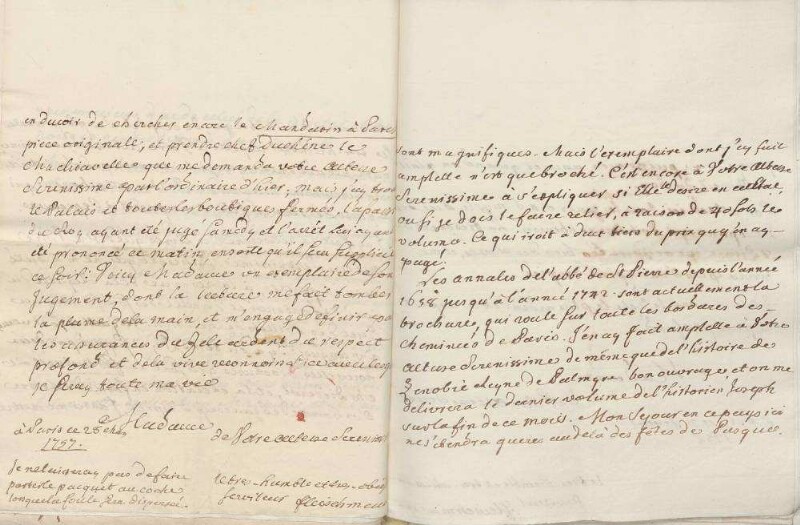 en devoir de chercher encore le Mandarin à Paris
piece originale, et prendre chez Duchêne le
Machiavelle que me demanda votre Altesse
Serenissime par l'ordinaire d'hier, mais j'ay trouvé
le Palais et toutes les boutiques fermés, l'
du Roy ayant été jugé samedy et l'arrêt luy ayant
été prononcé ce matin, ensorte qu'il sera supplicié
ce soir. Voicy Madame un exemplaire de son
Jugement, dont la lecture me fait tomber
la plume de la main, et m'engage de finir
les assurances du zele ardent du respect
profond et de la vive reconnoissance avec lesquels
je seray toute ma vie
Madame
de Votre Altesse Serenissime
à Paris ce 28e
1757.
Je ne laisseray pas de faire
porter le pacquet au coche
lorsque la foule sera dispersée.
le tres-humble et tres-obeiss
serviteur fleischmann
sont magnifiques. Mais l'exemplaire dont j'ay fait
amplette n'est que broché. C'est encore à Votre Altesse
Serenissime à s'expliquer si Elle le desire en cet état,
ou si je dois le faire relier, à raison de 40 sols le
volume. Ce qui iroit à deux tiers du prix que j'en ay
payé.
Les annales de l'abbé de St Pierre depuis l'année
1658 jusqu'à l'année 1742. sont actuellement la
brochure, qui roule sur toute les bordures des
cheminées de Paris. J'en ay fait amplette à Votre
Altesse Serenissime de même que de l'histoire de
Zenobie Reyne de Palmyre bon ouvrage, et on me
delivrera le dernier volume de l'historien Joseph
sur la fin de ce mois. Mon sejour en ce pays ici
ne s'etendra gueres au delà des fêtes de Pasques.